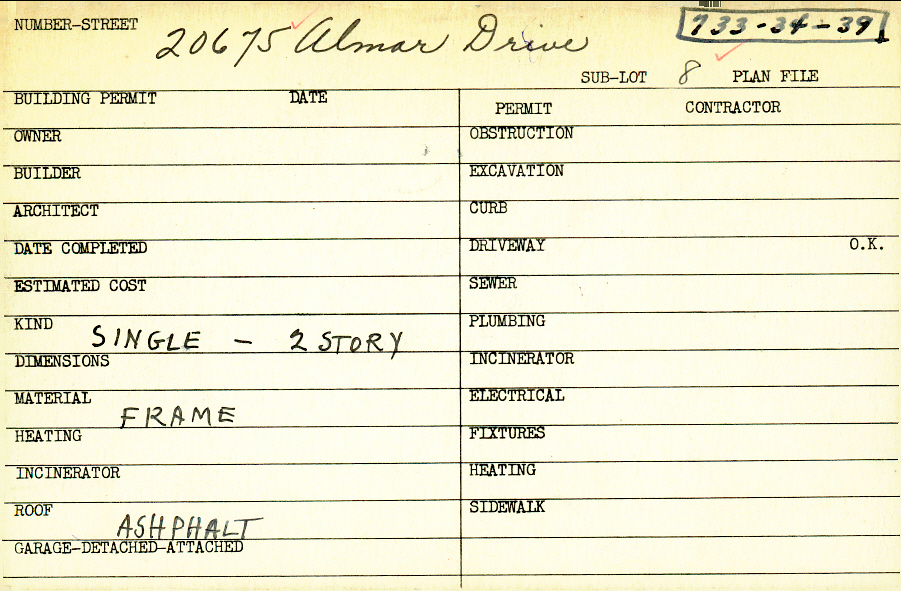 NUMBER-STREET 20675 Almar Drive 733-34-39
SUB-LOT 8 PLAN FILE
BUILDING PERMIT DATE
OWNER
BUILDER
ARCHITECT
DATE COMPLETED
ESTIMATED COST
KIND SINGLE - 2 STORY
DIMENSIONS
MATERIAL FRAME
HEATING
INCINERATOR
ROOF ASHPHALT
GARAGE-DETACHED-ATTACHED
PERMIT CONTRACTOR
OBSTRUCTION
EXCAVATION
CURB
DRIVEWAY O.K.
SEWER
PLUMBING
INCINERATOR
ELECTRICAL
FIXTURES
HEATING
SIDEWALK